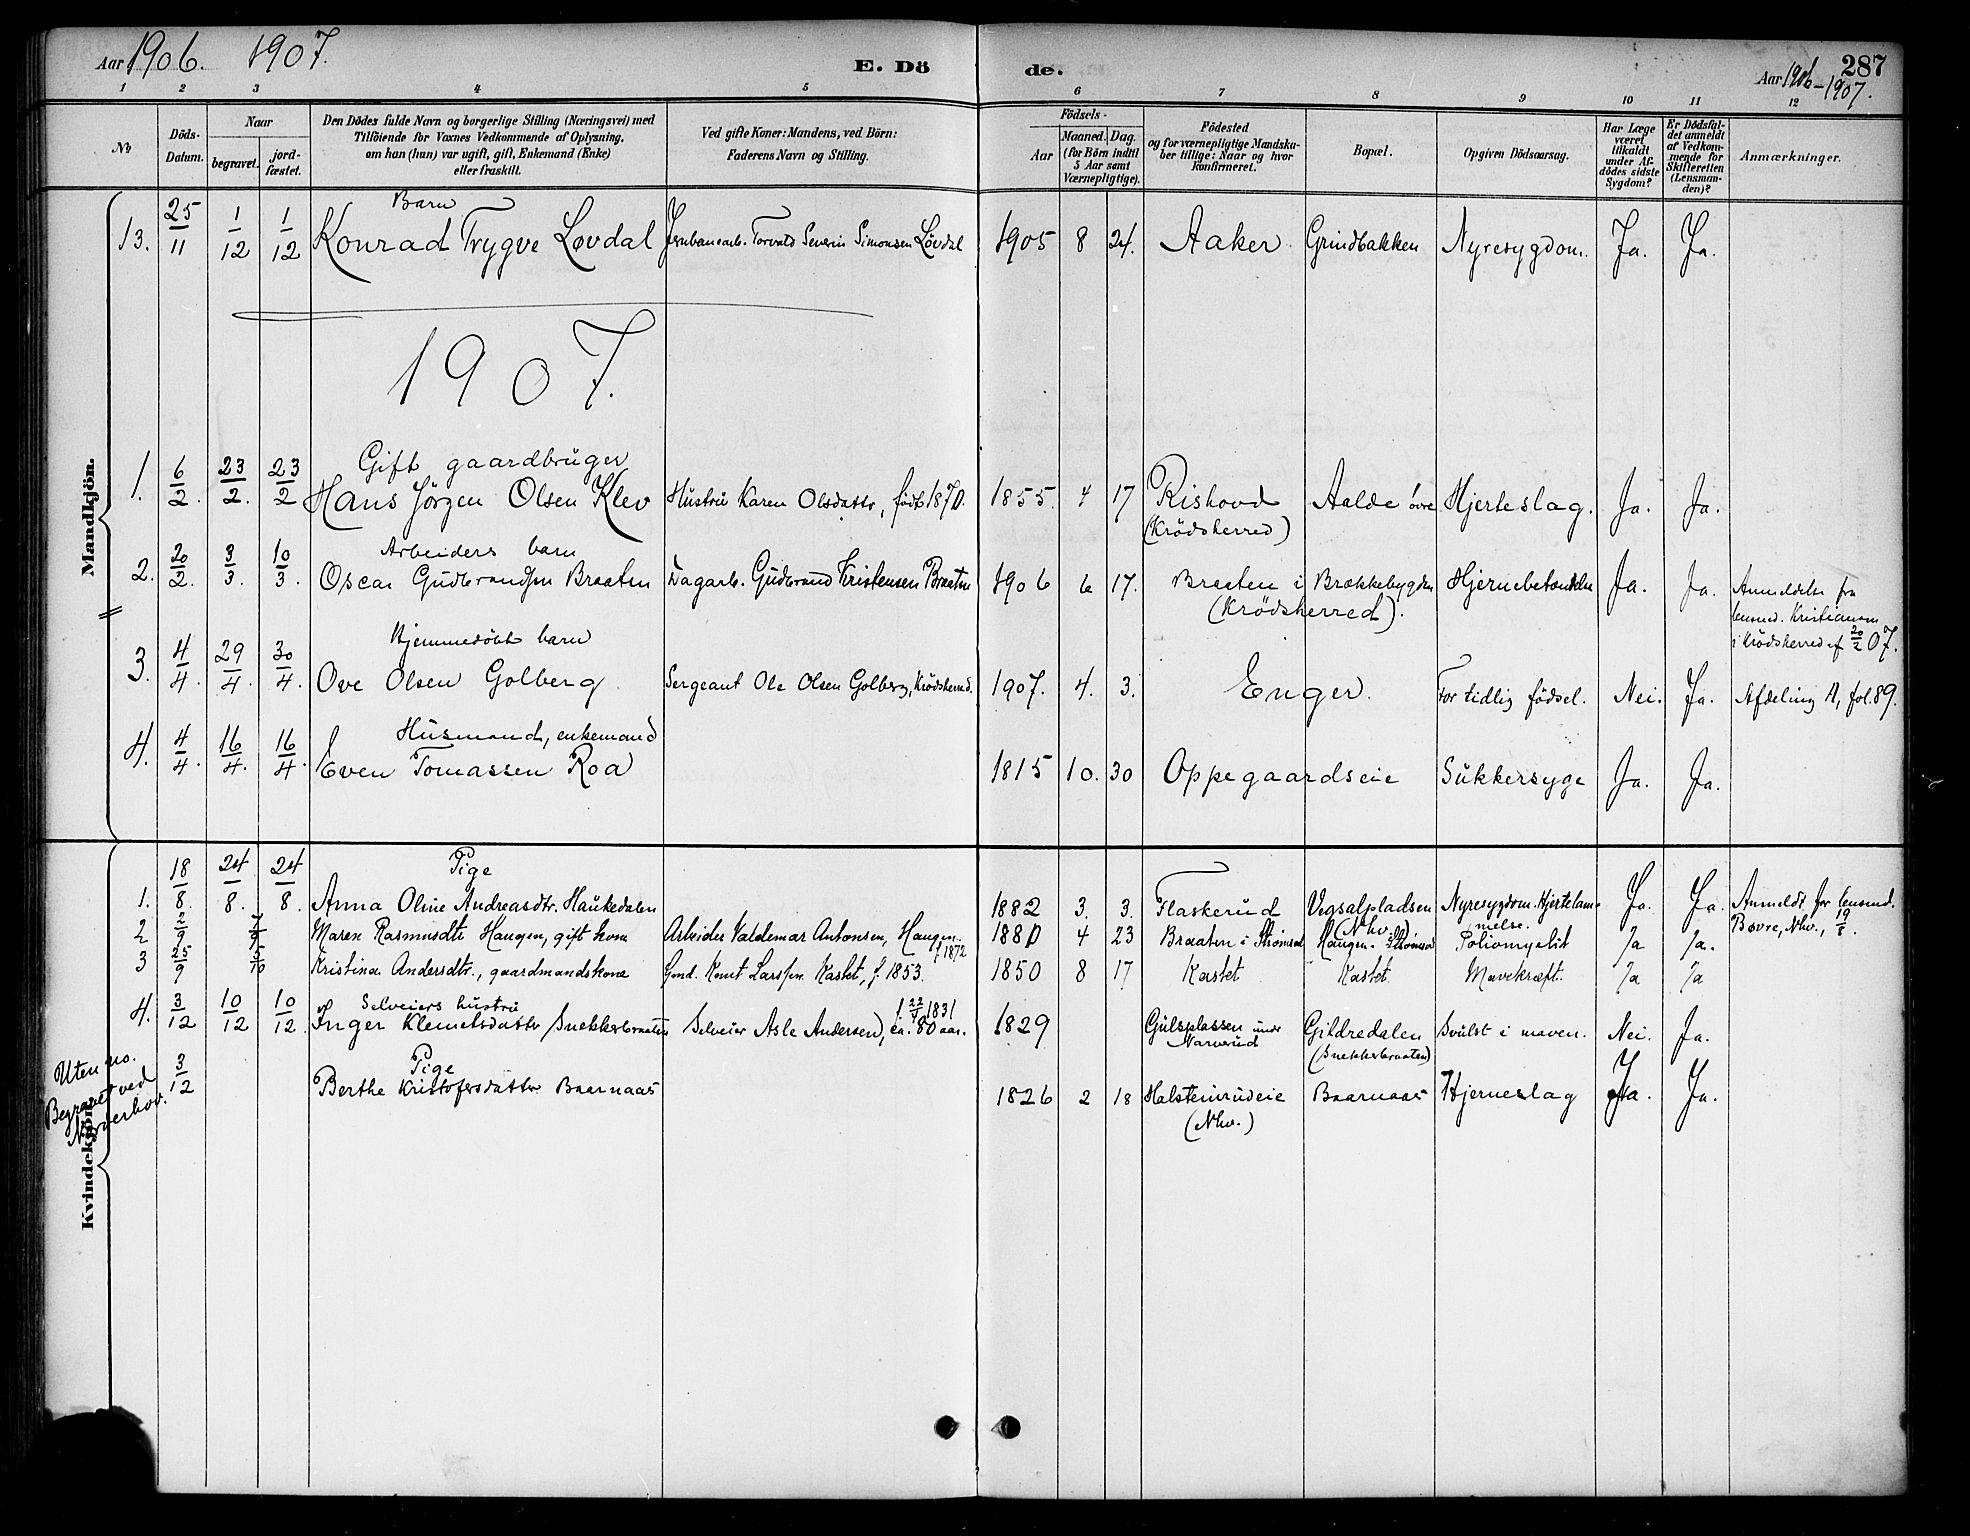 Aar 1906. 1907.
E. Dö de.
287
Aar 1906-1907.
1 2 3 4 5 6 7 8 9 10 11 12
No
Döds-Datum.
Naar
begravet.
jord-fæstet.
Den Dödes fulde Navn og borgerlige Stilling (Næringsvei) med
Tilföiende for Voxnes Vedkommende af Oplysning,
om han (hun) var ugift, gift, Enkemand (Enke)
eller fraskilt.
Ved gifte Koner: Mandens, ved Börn:
Faderens Navn og Stilling.
Födsels-
Aar
Maaned. Dag.
(for Börn indtil
5 Aar samt
Værnepligtige).
Födested
og for værnepligtige Mandska-
ber tillige: Naar og hvor
konfirmeret.
Bopæl.
Opgiven Dödsaarsag.
Har Læge
været
tilkaldt
under Af-
dödes sidste
Sygdom?
Er Dödsfal-
det anmeldt
af Vedkom-
mende for
Skifteretten
(Lensman-
den)?
Anmærkninger.
Mandkjön.
Barn
13. 25/11 1/12 1/12 Konrad Trygve Løvdal Jernbanearb. Torvald Severin Simonsen Løvdal 1905 8 24. Aaker Grindbakken Nyresygdom. Ja. Ja.
1907.
Gift gaardbruger
1. 6/2. 23/2. 23/2 Hans Jörgen Olsen Klev Hustru Karen Olsdattr, født 1870. 1855. 4 17 Rishovd Aalde övre Hjerteslag. Ja. Ja.
(Krödsherred)
Arbeiders barn
2. 20/2. 3/3. 10/3. Oscar Gudbrandsen Braaten Dagarb. Gudbrand Kristensen Braaten 1906 6 17. Braaten i Brækkebygden Hjernebetændelse Ja. Ja. Anmeldelse fra
(Krödsherred). lensmd. Kristiansen
i Krödsherred af 20/2 07.
Hjemmedöbt barn
3. 4/4. 29/4. 30/4. Ove Olsen Golberg Sergeant Ole Olsen Golberg, Krödsherred. 1907. 4. 3. Enger. For tidlig födsel. Nei. Ja. Afdeling A, fol. 89.
Husmand, enkemand
4. 4/4. 16/4. 16/4. Even Tomassen Roa 1815 10. 30 Oppegaardseie Sukkersyge Ja. Ja.
Kvindekjön.
Pige
1. 18/8. 24/8. 24/8. Anna Oline Andreasdtr. Haukedalen 1882 3. 3. Flaskerud Vegsalpladsen Nyresygdom. Hjertelam- Ja. Ja. Anmeldt for lensmd.
(Nhv.) melse. Bøvre, Nhv., 19/8.
2 2/9 7/9 Maren Rasmusdtr Haugen, gift kone Arbeider Valdemar Antonsen, Haugen. f. 1872 1880 4 23 Braaten i Strömsod Haugen i Strömsod Poliomyelit Ja Ja.
3 25/9 5/10 Kristina Andersdtr., gaardmandskone Gmd. Knut Larssen Kastet, f. 1853. 1850 8 17 Kastet Kastet Mavekræft. Ja Ja
Selveiers hustru f. 22/4 1831
4. 3/12 10/12 10/12. Inger Klemetsdattr Snekkerbraaten Selveier Asle Andersen, ca. 80 aar. 1829 Gulsplassen under Gildredalen Svulst i maven. Nei. Ja.
Narverud (Snekkerbraaten)
Uten no.
Begravet ved
Norderhov.
Pige
3/12 Berthe Kristofersdattr Baarnaas 1826 2 18 Halsteinrudeie Baarnaas Hjerneslag Ja. Ja.
(Nhv.)